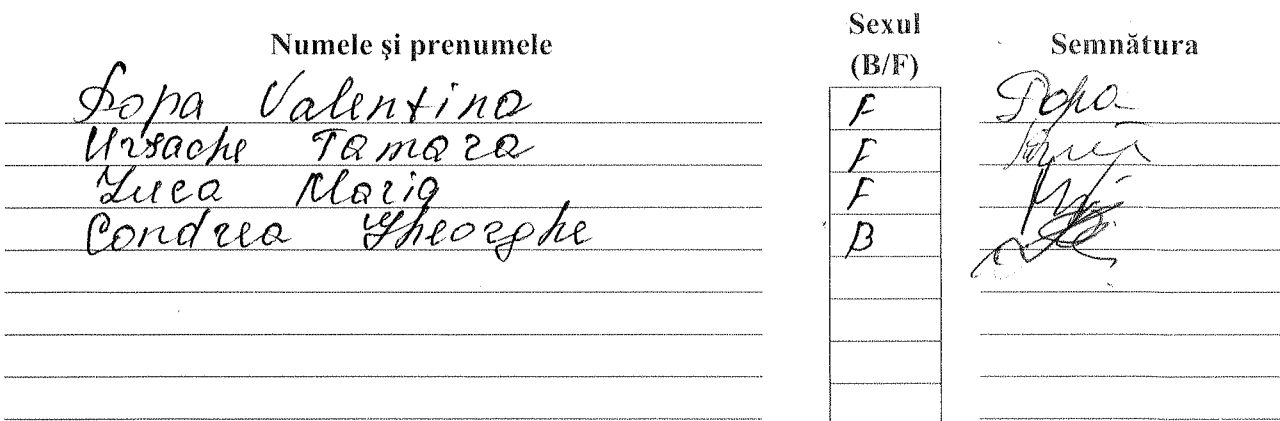 Numele și prenumele Sexul (B/F) Semnătura
Popa Valentina F Popa
Ursache Tamara F
Luca Maria F
Condrea Gheorghe B